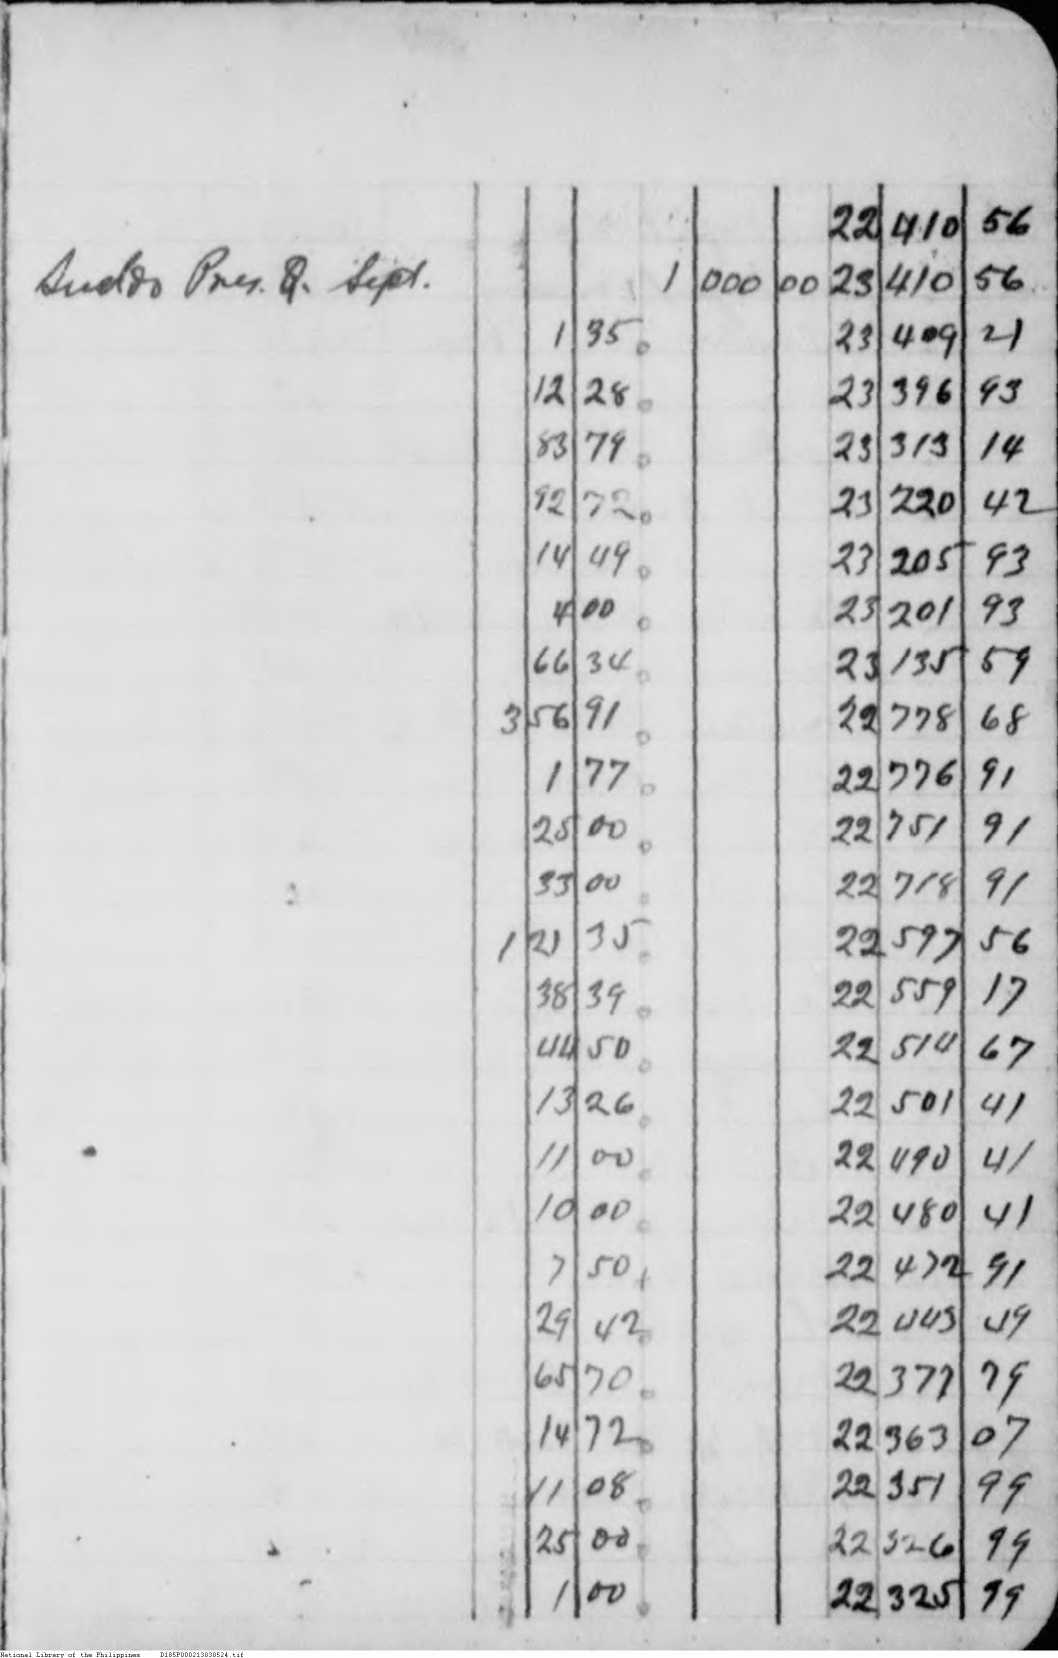 22 410 56
Sueldo Pres. Q. Sept. 1 000 00 23 410 56
1 35 23 409 21
12 28 23 396 93
83 79 23 313 14
92 72 23 220 42
14 49 23 205 93
4 00 23 201 93
66 34 23 135 59
3 56 91 22 778 68
1 77 22 776 91
25 00 22 751 91
33 00 22 718 91
1 21 35 22 597 56
38 39 22 559 17
44 50 22 514 67
13 26 22 501 41
11 00 22 490 41
10 00 22 480 41
7 50 22 472 91
29 42 22 443 49
65 70 22 377 79
14 72 22 363 07
11 08 22 351 99
25 00 22 326 99
1 00 22 325 99
National Library of the Philippines D185P000213830524.tif